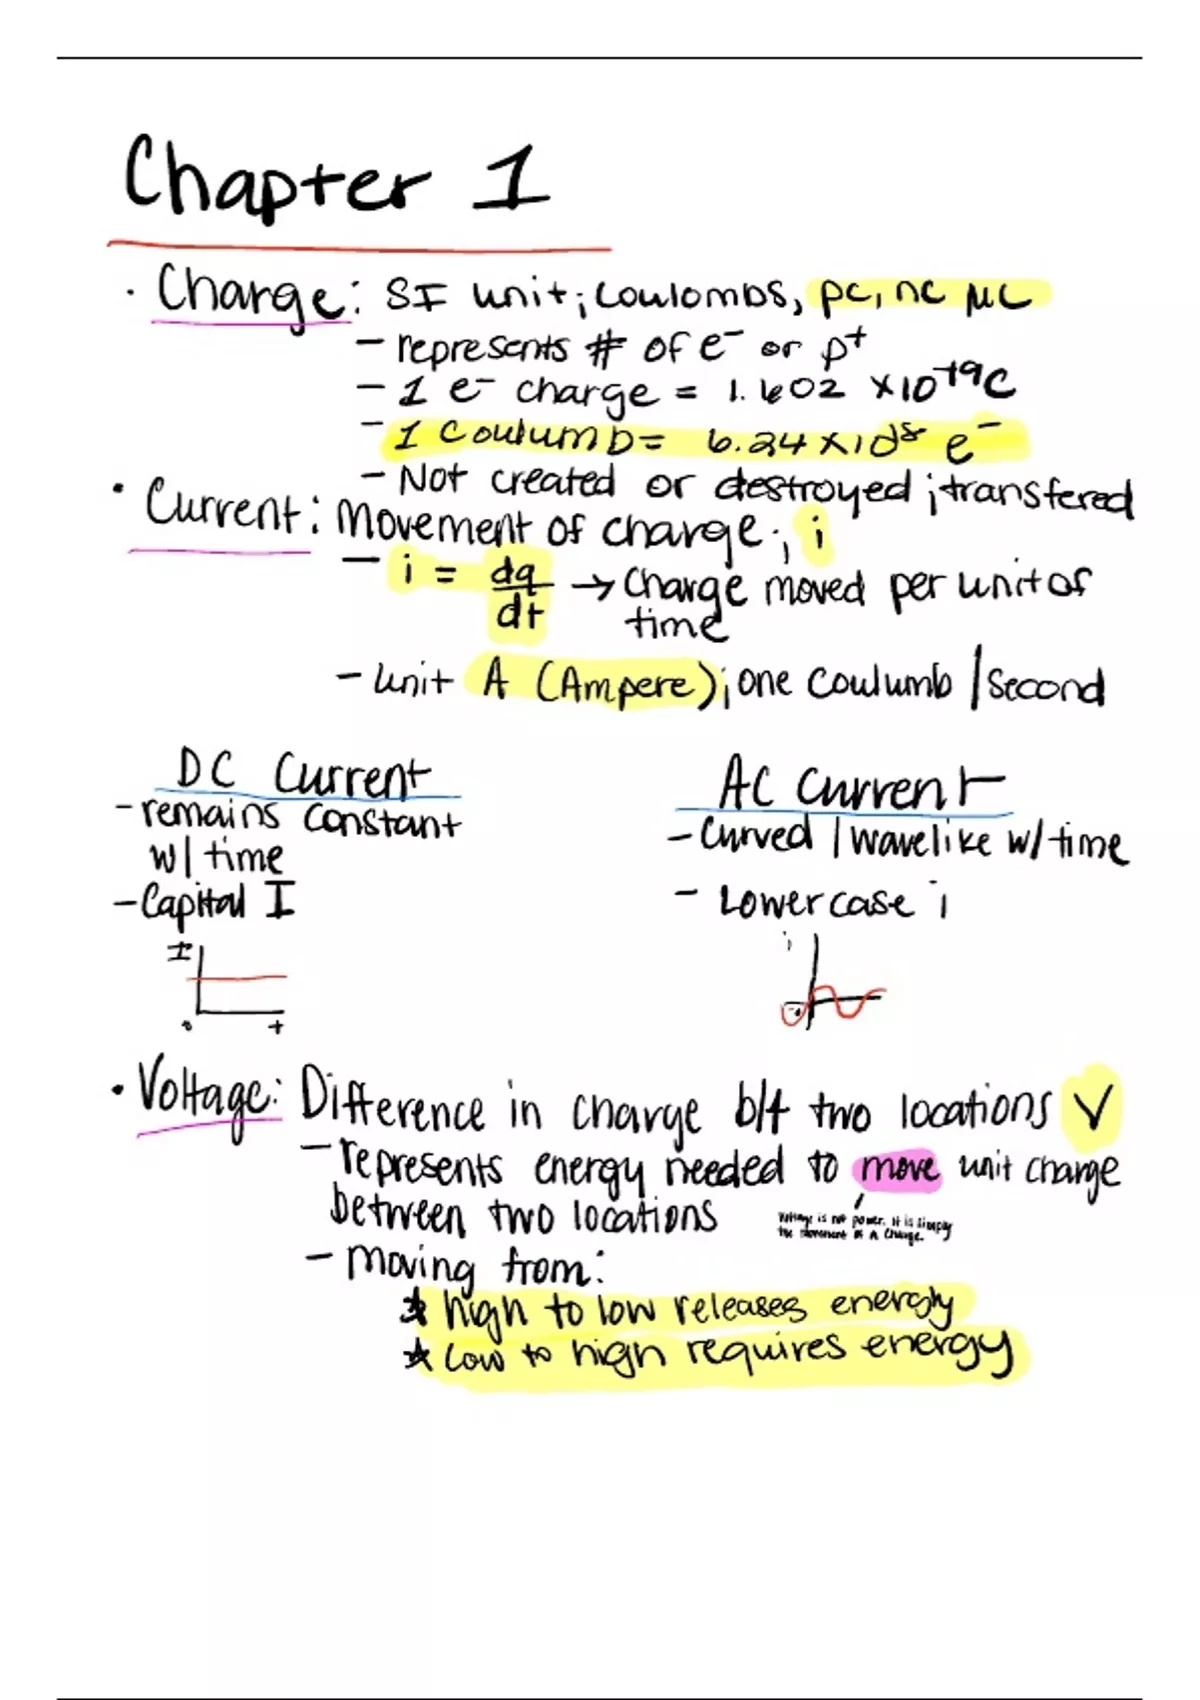 Chapter 1
· Charge: SI unit; Coulombs, pC, nC μC
- represents # of e⁻ or p⁺
- 1 e⁻ charge = 1.602 ×10⁻¹⁹C
- 1 Coulumb = 6.24×10¹⁸ e⁻
- Not created or destroyed; transfered
· Current: Movement of charge; i
- i = dq/dt → Charge moved per unit of
time
- unit A (Ampere); one Coulumb / Second
DC Current
- remains constant
w/ time
- Capital I
I
0 t
AC Current
- Curved / wavelike w/ time
- Lowercase i
i
· Voltage: Difference in charge b/t two locations V
- represents energy needed to move unit charge
between two locations
Voltage is not power. It is simply
the movement of a charge.
- Moving from:
★ high to low releases energy
★ Low to high requires energy